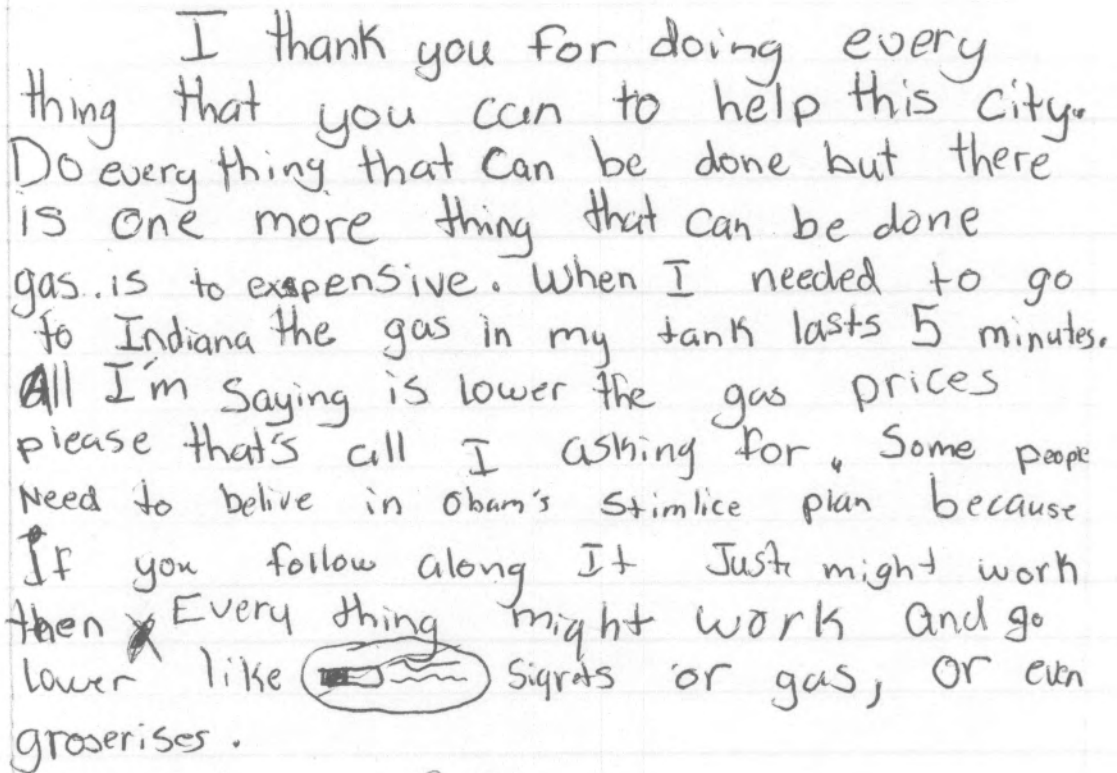 I thank you for doing every
thing that you can to help this city.
Do every thing that can be done but there
is one more thing that can be done
gas is to expensive. When I needed to go
to Indiana the gas in my tank lasts 5 minutes.
All I'm saying is lower the gas prices
please that's all I asking for. Some peope
Need to belive in Obam's Stimlice plan because
If you follow along It Just might work
then Every thing might work and go
lower like Sigrets or gas, or even
groserises.